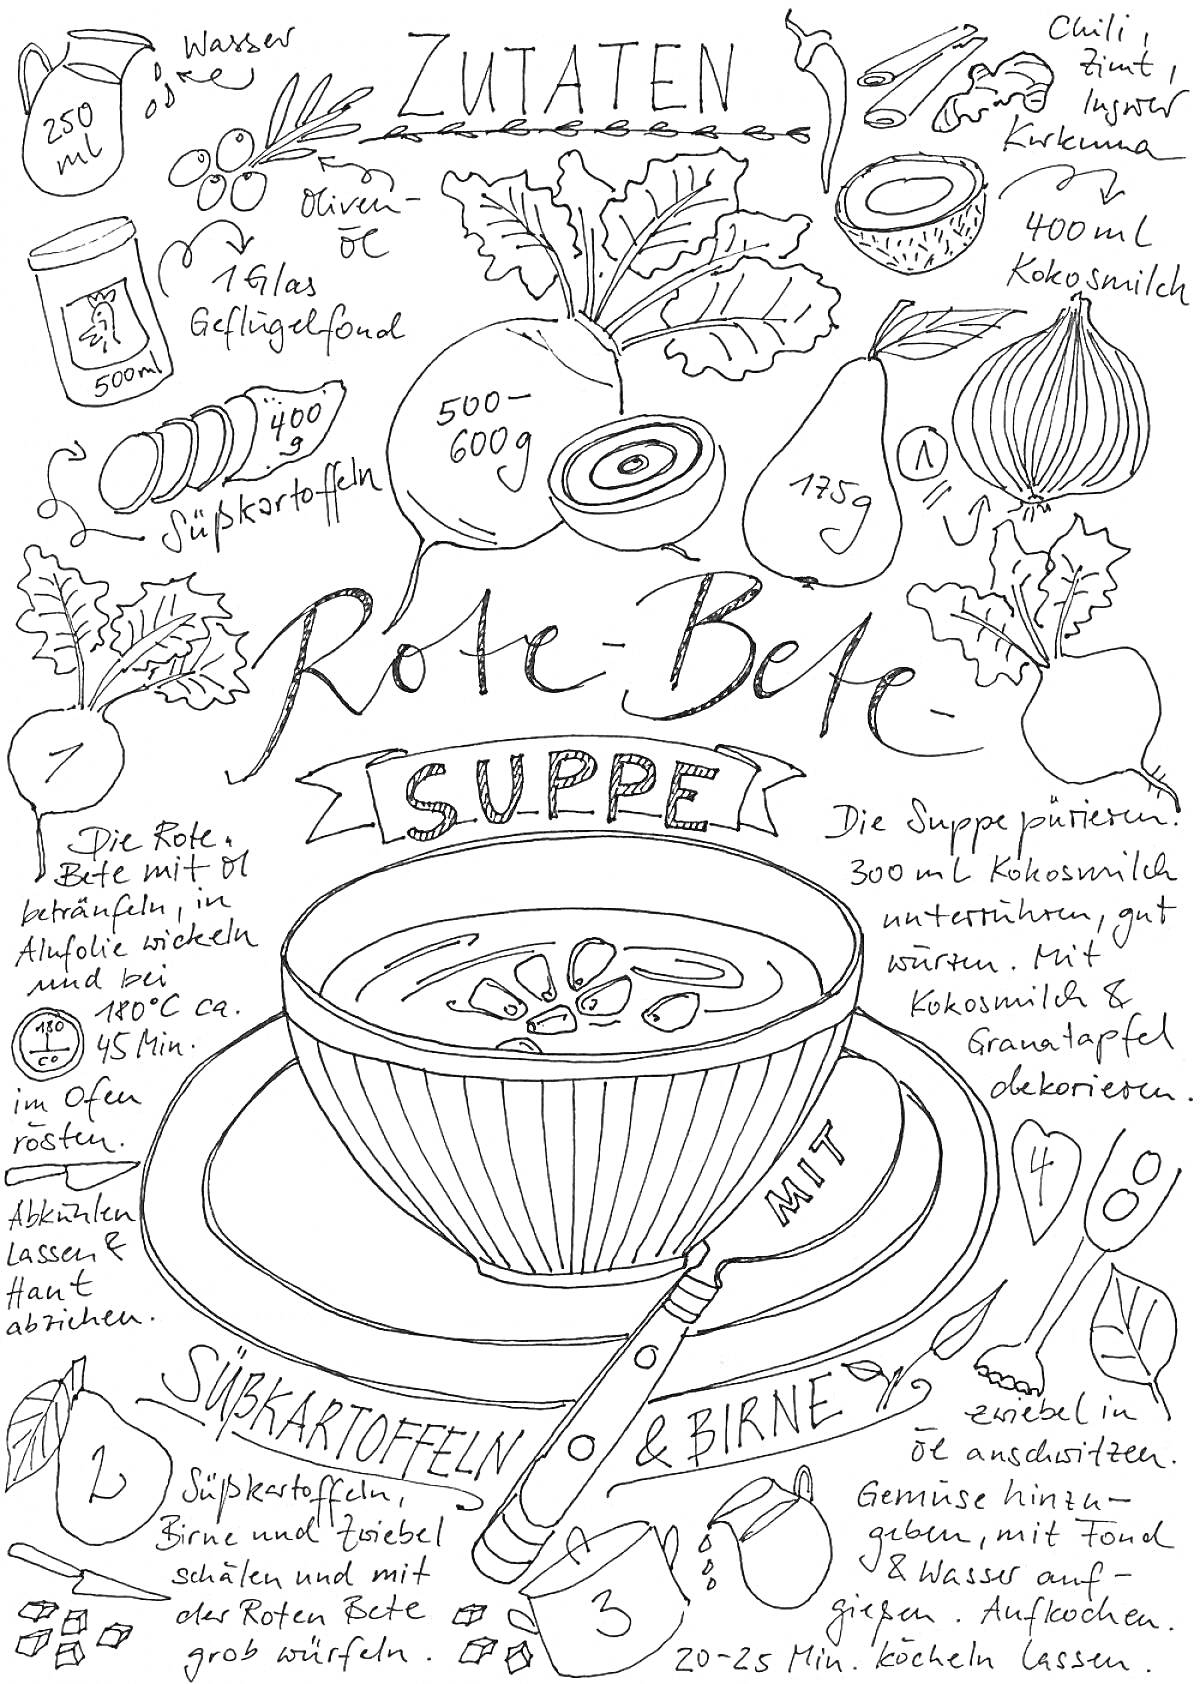 ZUTATEN
Wasser
250
ml
Oliven-
öl
1 Glas
Geflügelfond
500ml
400
g
Süßkartoffeln
500-
600g
175g
1
Chili,
Zimt,
Ingwer
Kurkuma
400 ml
Kokosmilch
Rote-Bete-
SUPPE
MIT
SÜßKARTOFFELN & BIRNE
1
Die Rote
Bete mit Öl
beträufeln, in
Alufolie wickeln
und bei
180°C ca.
180
C°
45 Min.
im Ofen
rösten.
Abkühlen
lassen &
Haut
abziehen.
2
Süßkartoffeln,
Birne und Zwiebel
schälen und mit
der Roten Bete
grob würfeln.
3
Zwiebel in
Öl anschwitzen.
Gemüse hinzu-
geben, mit Fond
& Wasser auf-
gießen. Aufkochen.
20-25 Min. köcheln lassen.
4
Die Suppe pürieren.
300 ml Kokosmilch
unterrühren, gut
würzen. Mit
Kokosmilch &
Granatapfel
dekorieren.